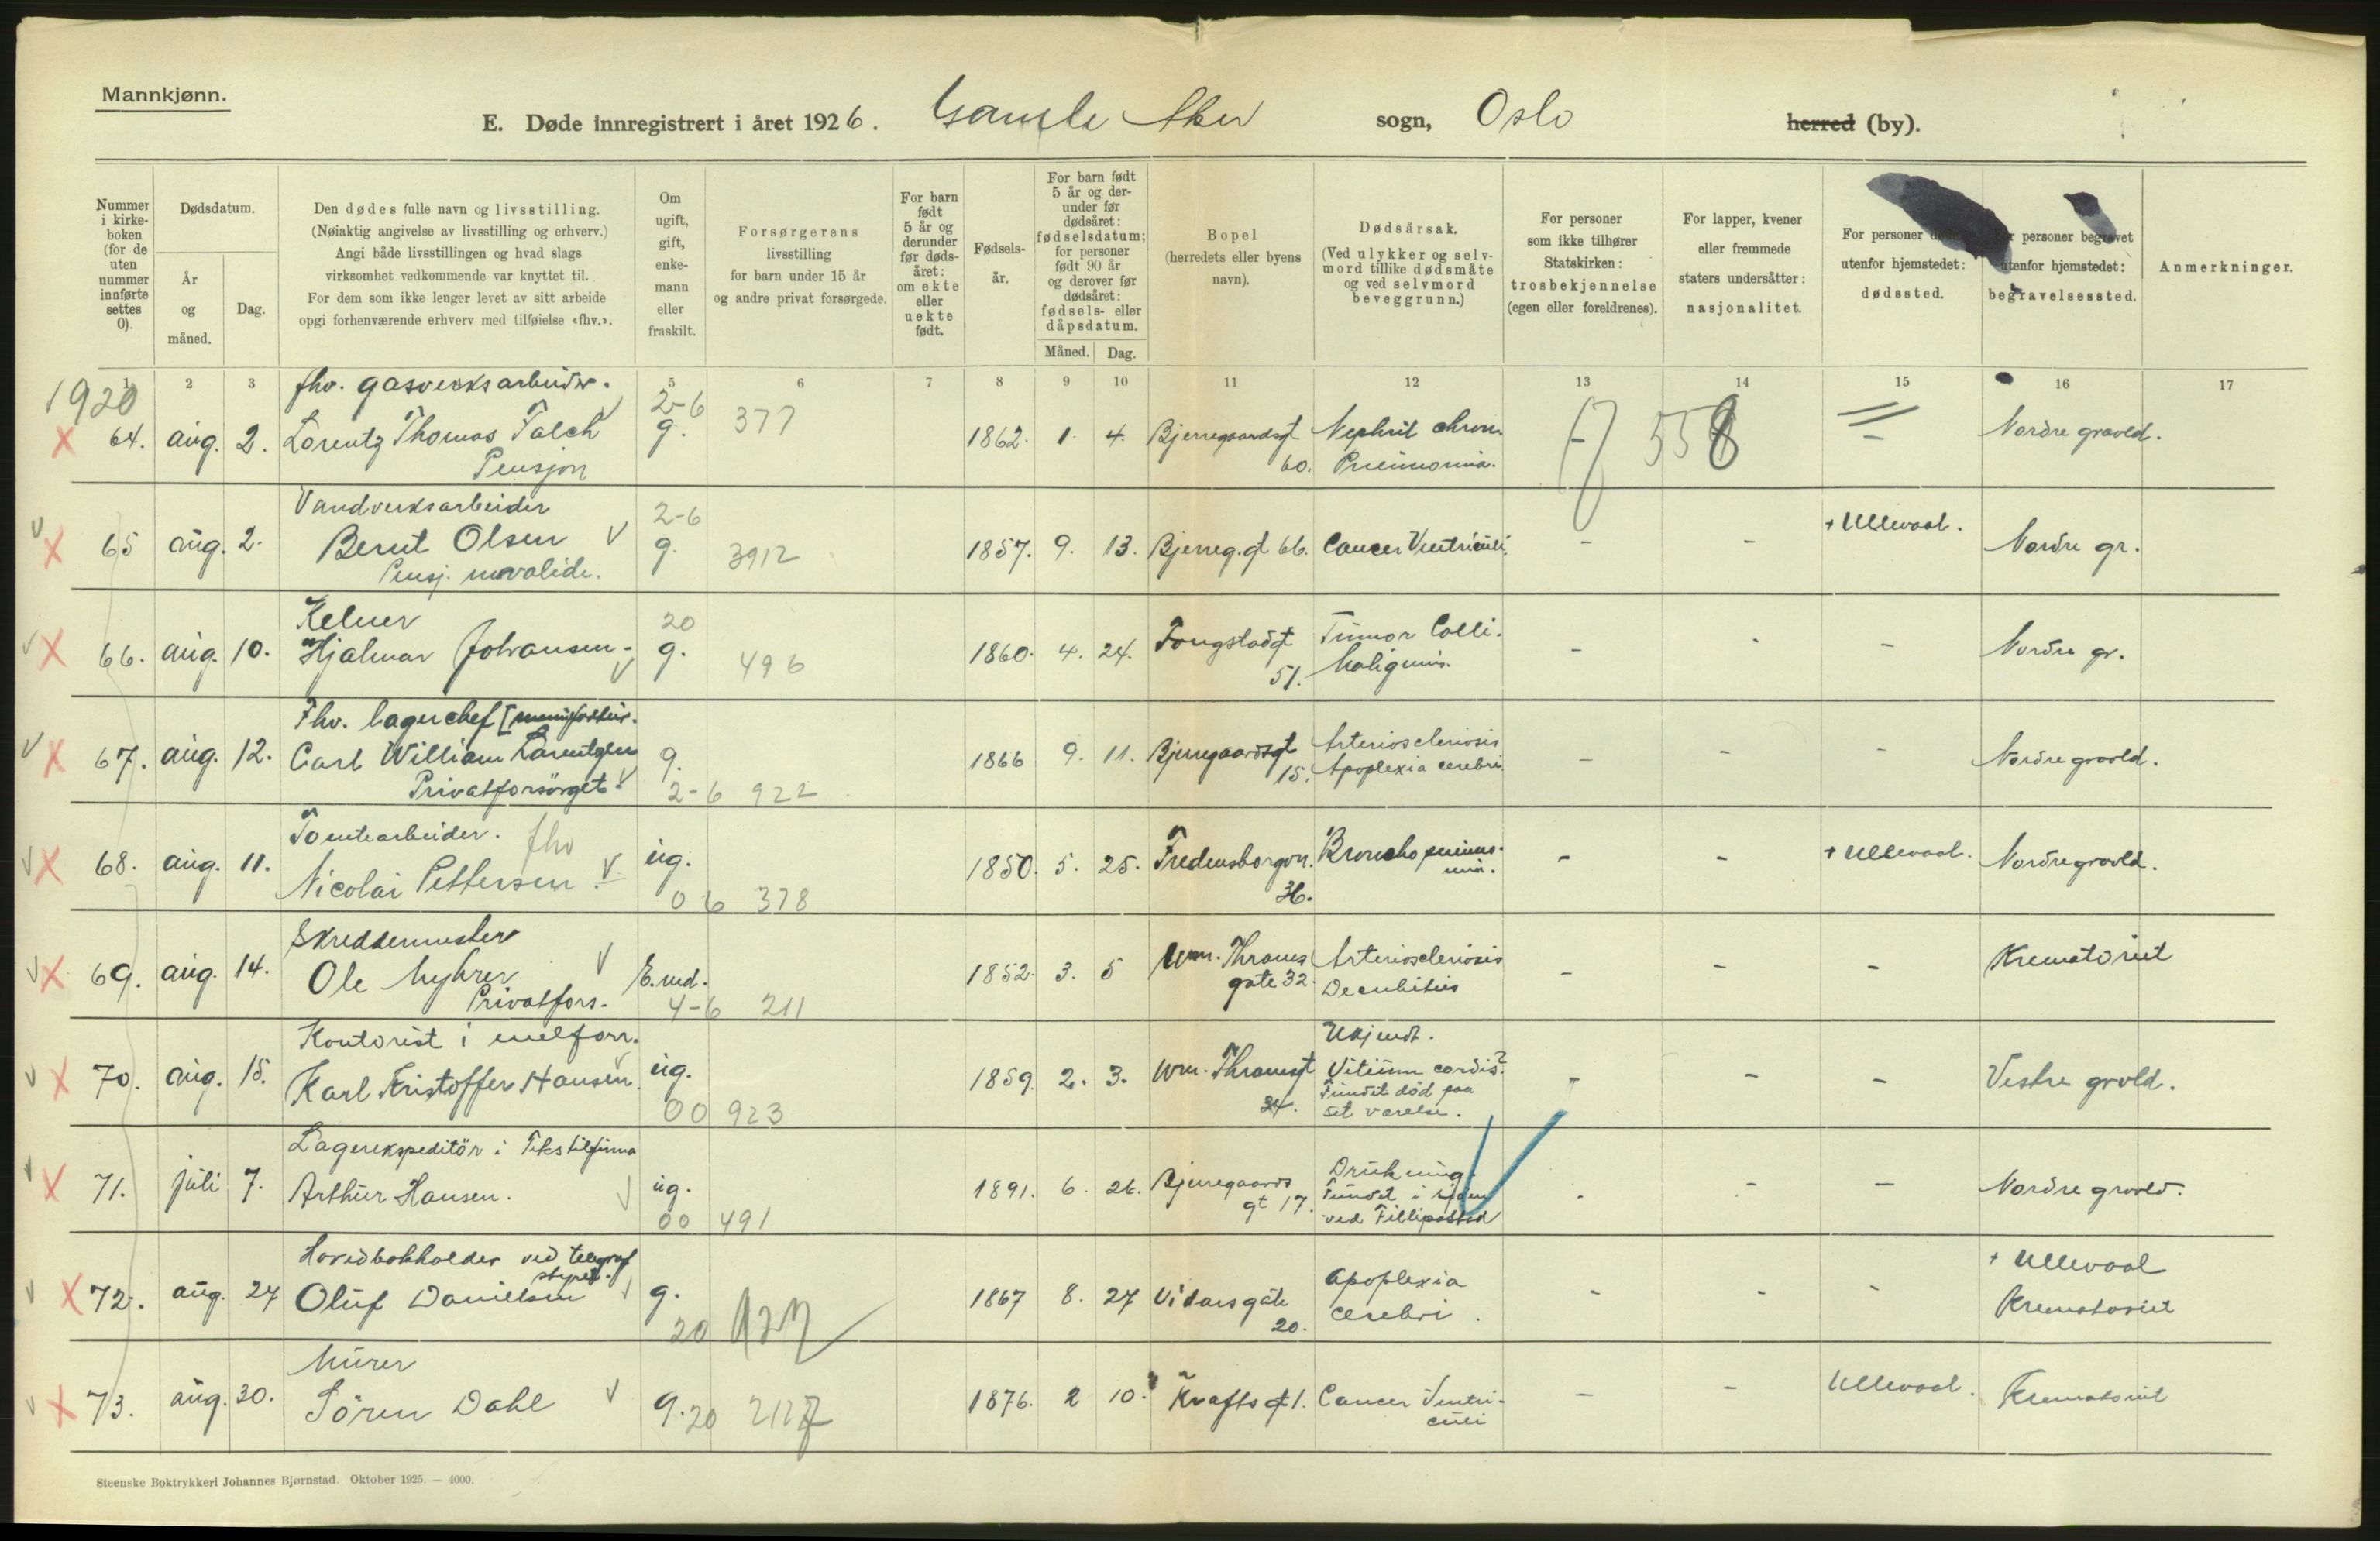 Mannkjønn.
E. Døde innregistrert i året 1926. Gamle Aker sogn, Oslo herred (by).
Nummer i kirkeboken (for de uten nummer innførte settes 0).
Dødsdatum.
År og måned.
Dag.
Den dødes fulle navn og livsstilling.
(Nøiaktig angivelse av livsstilling og erhverv.)
Angi både livsstillingen og hvad slags
virksomhet vedkommende var knyttet til.
For dem som ikke lenger levet av sitt arbeide
opgi forhenværende erhverv med tilføielse «fhv.».
Om ugift, gift, enkemann eller fraskilt.
Forsørgerens livsstilling for barn under 15 år og andre privat forsørgede.
For barn født 5 år og derunder før dødsåret: om ekte eller uekte født.
Fødselsår.
For barn født 5 år og derunder før dødsåret: fødselsdatum; for personer født 90 år og derover før dødsåret: fødsels- eller dåpsdatum.
Måned. Dag.
Bopel (herredets eller byens navn).
Dødsårsak. (Ved ulykker og selvmord tillike dødsmåte og ved selvmord beveggrunn.)
For personer som ikke tilhører Statskirken: trosbekjennelse (egen eller foreldrenes).
For lapper, kvener eller fremmede staters undersåtter: nasjonalitet.
For personer utenfor hjemstedet: dødssted.
personer begravet utenfor hjemstedet: begravelsessted.
Anmerkninger.
1 2 3 5 6 7 8 9 10 11 12 13 14 15 16 17
1920
fhv. gasverksarbeider.
2-6 377
X 64. aug. 2. Lorentz Thomas Falch g. 1862. 1. 4. Bjerregaardsgt 60. Nephrit chron. Pneumonia. 558 - Nordre gravld.
Pensjon
Vandverksarbeider
2-6
X 65 aug. 2. Bernt Olsen g. 3912 1857. 9. 13. Bjerreg.gt 66. Cancer Ventriculi. - - + Ullevaal. Nordre gr.
Pensj. invalide.
Kelner
20
X 66. aug. 10. Hjalmar Johansen g. 496 1860. 4. 24. Tongstadgt 51. Tumor Colli. Malignus. - - - Nordre gr.
Fhv. lagerchef
X 67. aug. 12. Carl William Larentzen g. 1866 9. 11. Bjerregaardsgt 15. Arterioscleriosis Apoplexia cerebri. - - - Nordre gravld.
Privatforsörget. 2-6 922
Tomtearbeider. fhv
X 68. aug. 11. Nicolai Pettersen ug. 1850. 5. 25. Fredensborgvn. 36. Bronchopneumonia. - - + Ullevaal. Nordre gravld.
06 378
Skreddermester
X 69. aug. 14. Ole Myhrer E.md. 1852. 3. 5 Wm. Thranes gate 32. Arteriosclerosis Decubitus - - - Krematoriet
Privatfors. 4-6 211
Kontorist i melforr.
X 70. aug. 15. Karl Kristoffer Hansen ug. 1859. 2. 3. Wm. Thranesgt 24. Ukjendt. Vitium cordis? Fundet död paa sit værelse. - - - Vestre grvld.
00 923
Lagerekspeditör i Tekstilfirma
X 71. juli 7. Arthur Hansen. ug. 1891. 6. 26. Bjerregaards gt 17. Drukning. Fundet i sjöen ved Fillipstad - - - Nordre gravld.
00 491
Hovedbokholder ved telegraf styret.
X 72. aug. 27 Oluf Danielsen g. 1867 8. 27 Vidarsgate 20. Apoplexia cerebri. - - - + Ullevaal Krematoriet
20 927
Murer
X 73. aug. 30. Sören Dahl g. 20 1876. 2 10. Kraftsgt 1. Cancer Ventriculi - - Ullevaal. Krematoriet
Steenske Boktrykkeri Johannes Bjørnstad. Oktober 1925. — 4000.